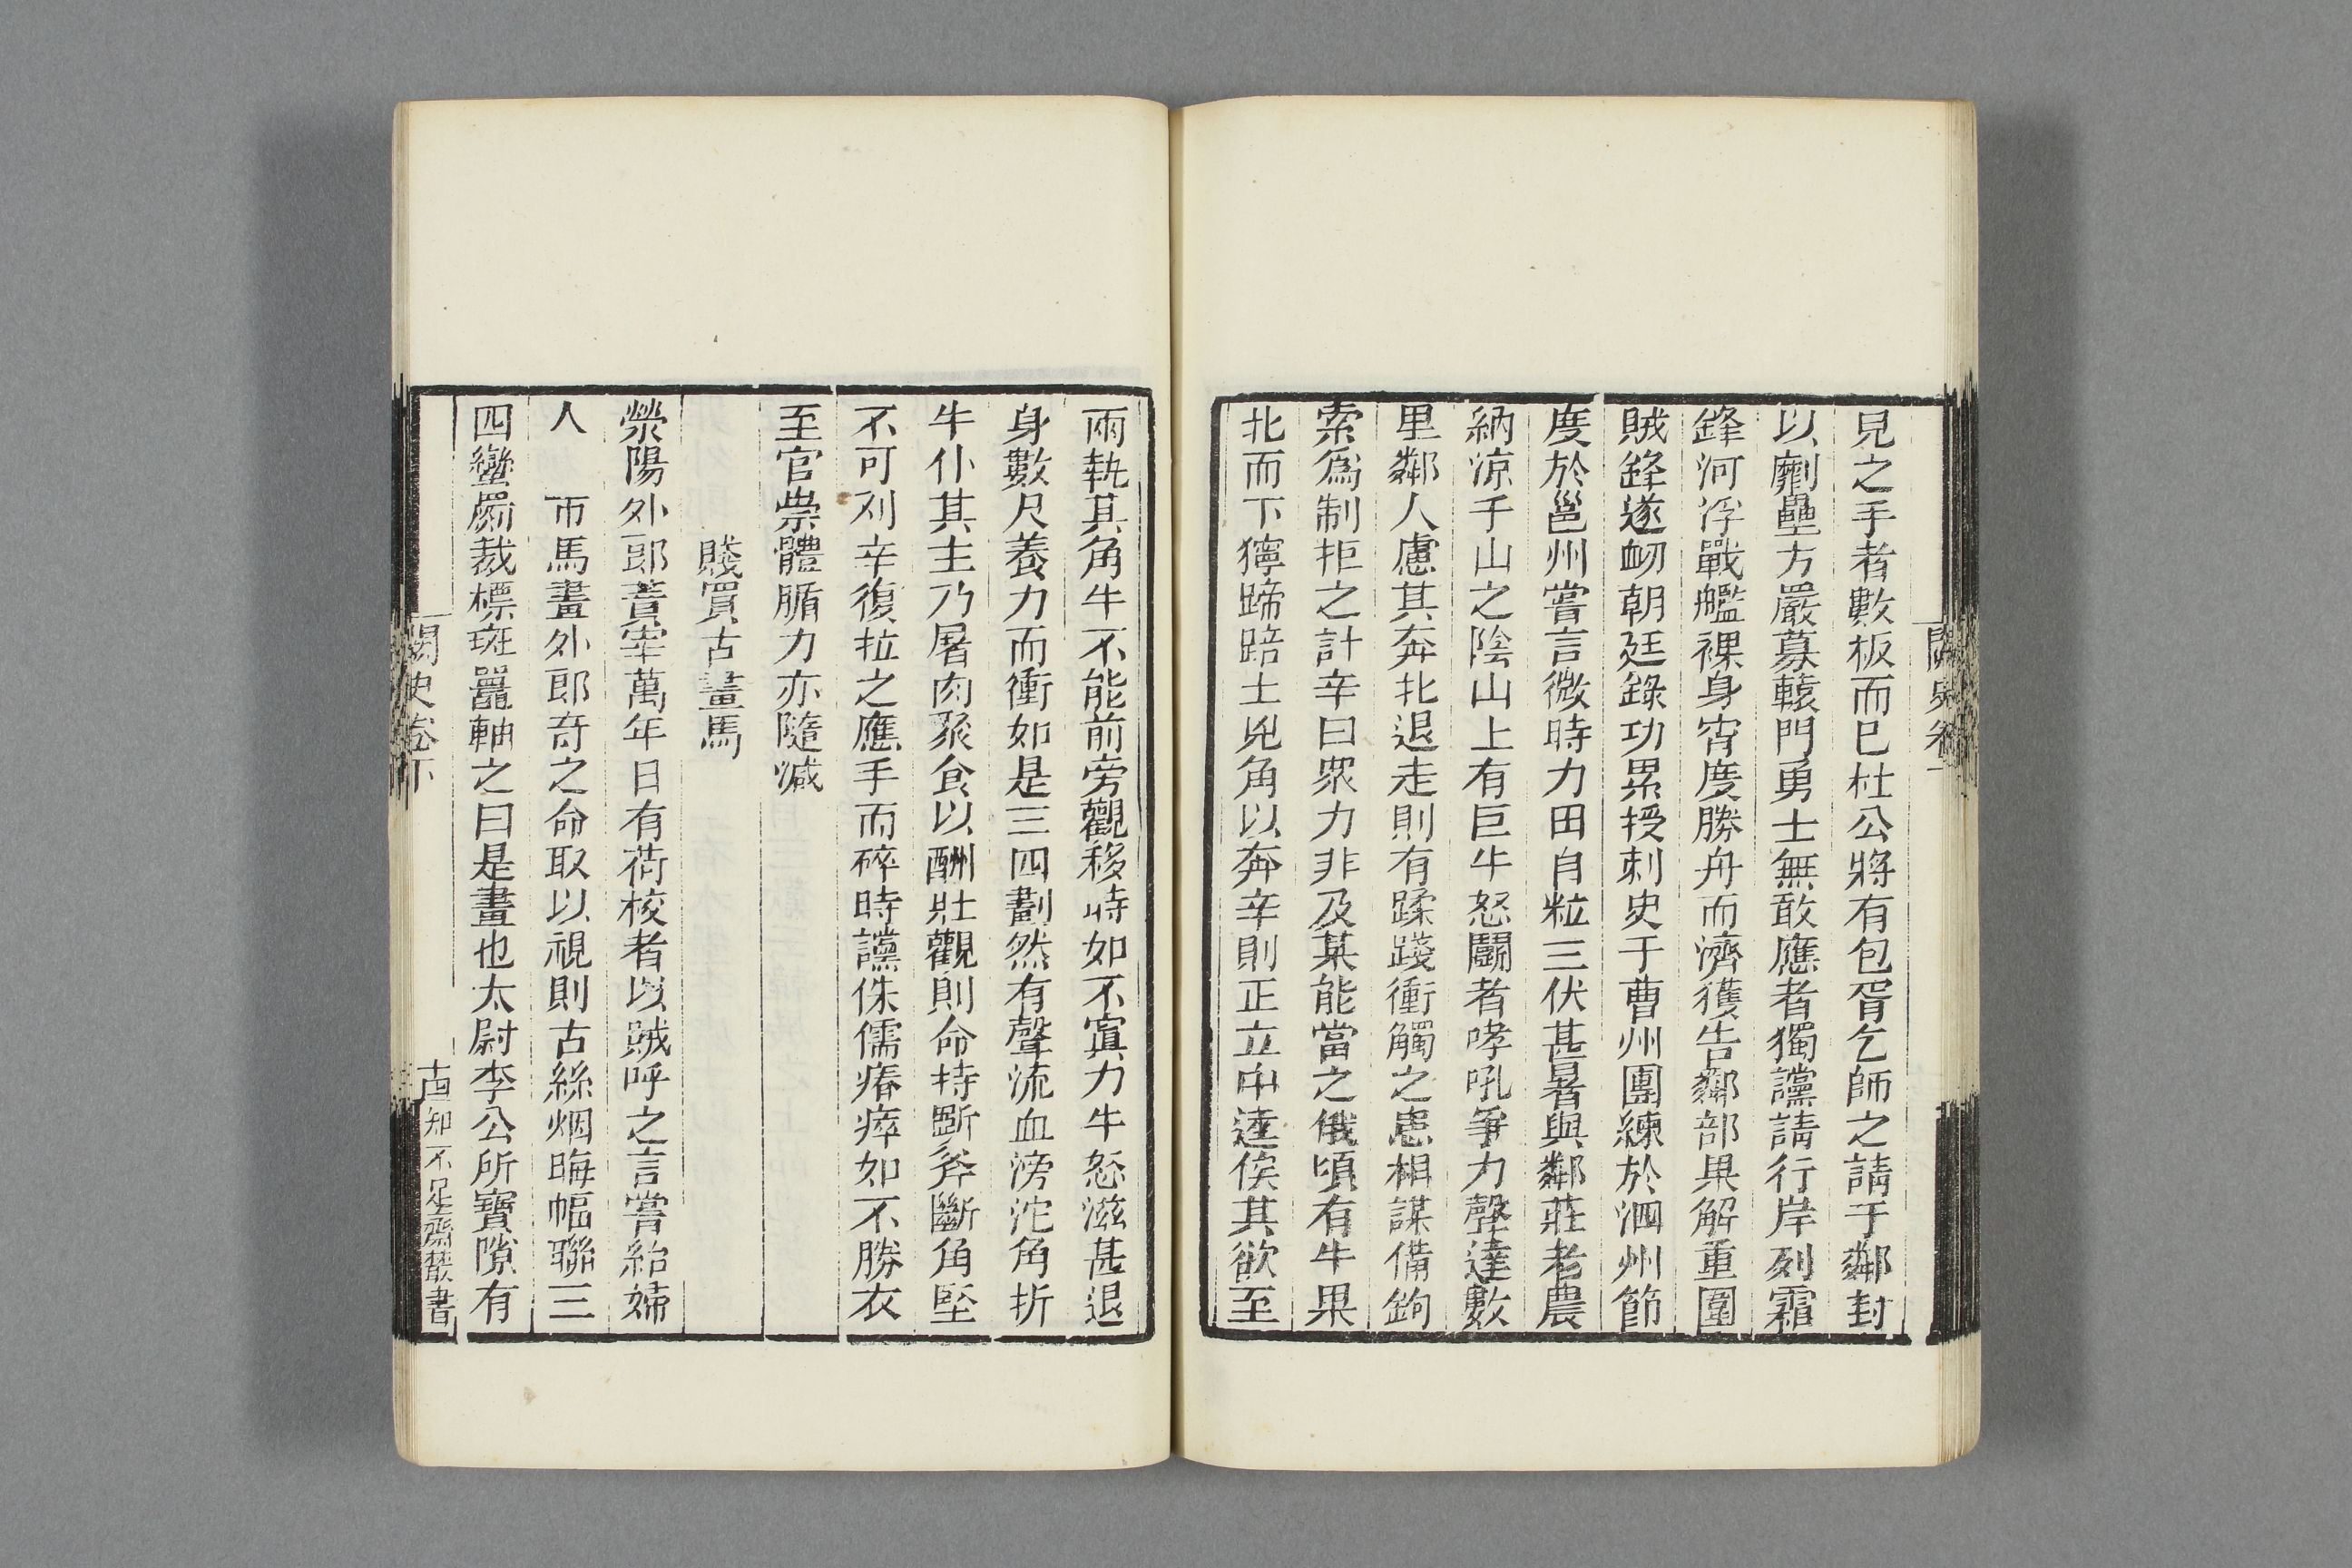 見之手者數板而已杜公將有包胥乞師之請于鄰封
以劘壘方嚴募轅門勇士無敢應者獨讜請行岸列霜
鋒河浮戰艦裸身宵度勝舟而濟獲告鄰部果解重圍
賊鋒遂衂朝廷錄功累授刺史于曹州團練於泗州節
度於邕州嘗言微時力田自粒三伏甚暑與鄰莊老農
納涼于山之陰山上有巨牛怒鬭者哮吼爭力聲達數
里鄰人慮其奔北退走則有蹂踐衝觸之患相謀備鉤
索爲制拒之計辛曰眾力非及某能當之俄頃有牛果
北而下獰蹄踣土兇角以奔辛則正立中逵俟其欲至
兩執其角牛不能前旁觀移時如不寘力牛怒滋甚退
身數尺養力而衝如是三四劃然有聲流血滂沱角折
牛仆其主乃屠肉聚食以酬壯觀則命持斸斧斷角堅
不可刋辛復拉之應手而碎時讜侏儒瘠瘁如不勝衣
至官祟體腯力亦隨減
賤買古畫馬
滎陽外郎蕡宰萬年日有荷校者以賊呼之言嘗紿婦
人　市馬畫外郎奇之命取以視則古絲烟晦幅聯三
四蠻罽裁標斑鼉軸之曰是畫也太尉李公所寶隙有
闕史卷下
十四 知不足齋叢書